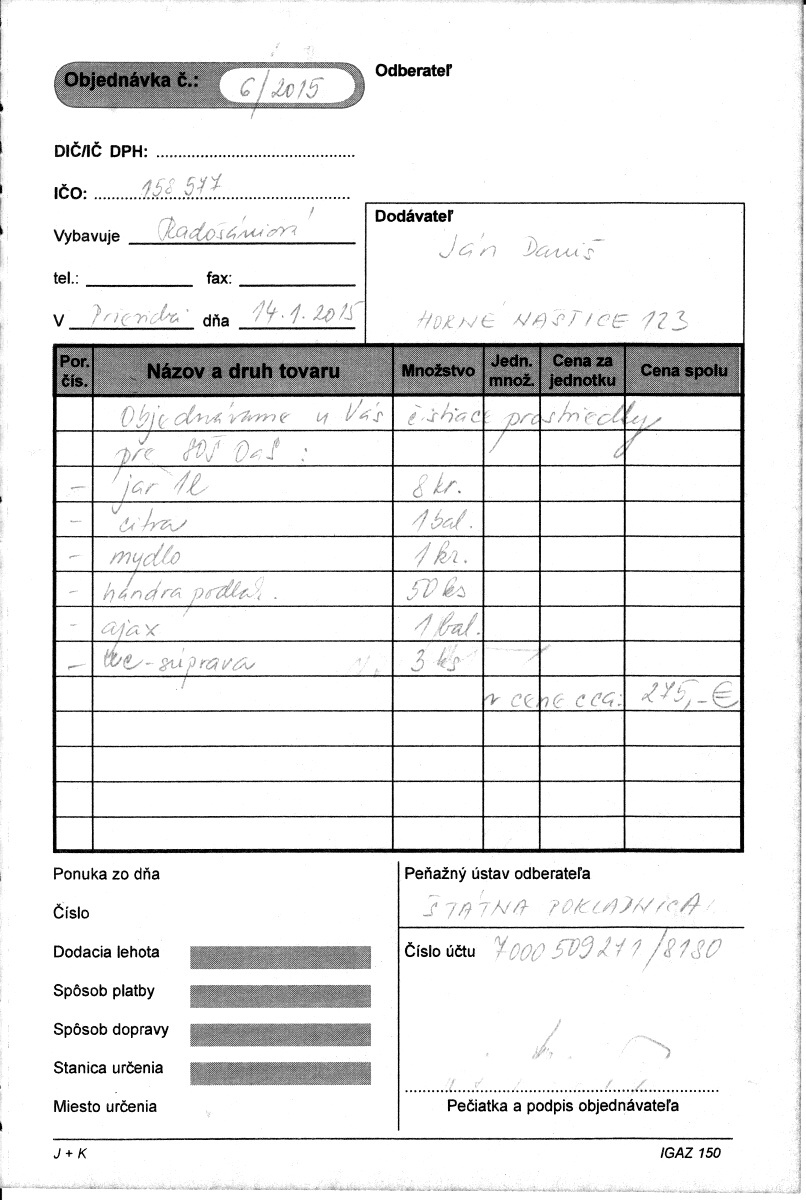 Objednávka č.: 6/2015
Odberateľ
DIČ/IČ DPH:
IČO: 158 577
Vybavuje Radošániová
tel.: fax:
V Prievidzi dňa 14.1.2015
Dodávateľ
Ján Daniš
HORNÉ NAŠTICE 123
Por. čís. Názov a druh tovaru Množstvo Jedn. množ. Cena za jednotku Cena spolu
Objednávame u Vás čistiace prostriedky
pre SOŠ OaS :
- jar 1l 8 kr.
- citra 1 bal.
- mydlo 1 kr.
- handra podlah. 50 ks
- ajax 1 bal.
- wc-súprava 3 ks
v cene cca: 275,-€
Ponuka zo dňa
Číslo
Dodacia lehota
Spôsob platby
Spôsob dopravy
Stanica určenia
Miesto určenia
Peňažný ústav odberateľa
ŠTÁTNA POKLADNICA
Číslo účtu 7000509271/8180
Pečiatka a podpis objednávateľa
J + K
IGAZ 150